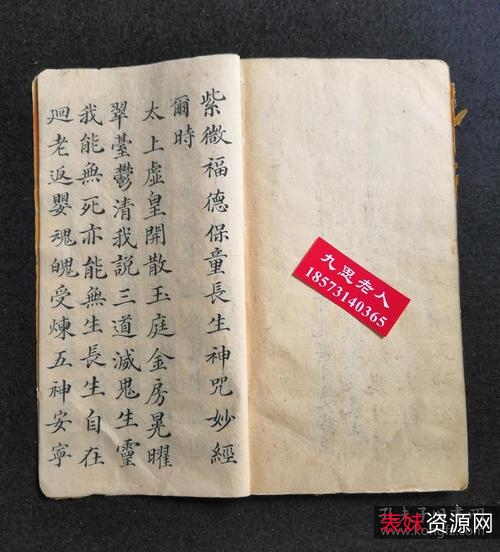 紫微福德保童長生神咒妙經
爾時
太上虛皇開散玉庭金房晃曜
翠臺鬱清我說三道滅鬼生靈
我能無死亦能無生長生自在
廻老返嬰魂魄受煉五神安寧
九思老人
18573140365
孔夫子旧书网
www.kongfz.com
表妹资源网